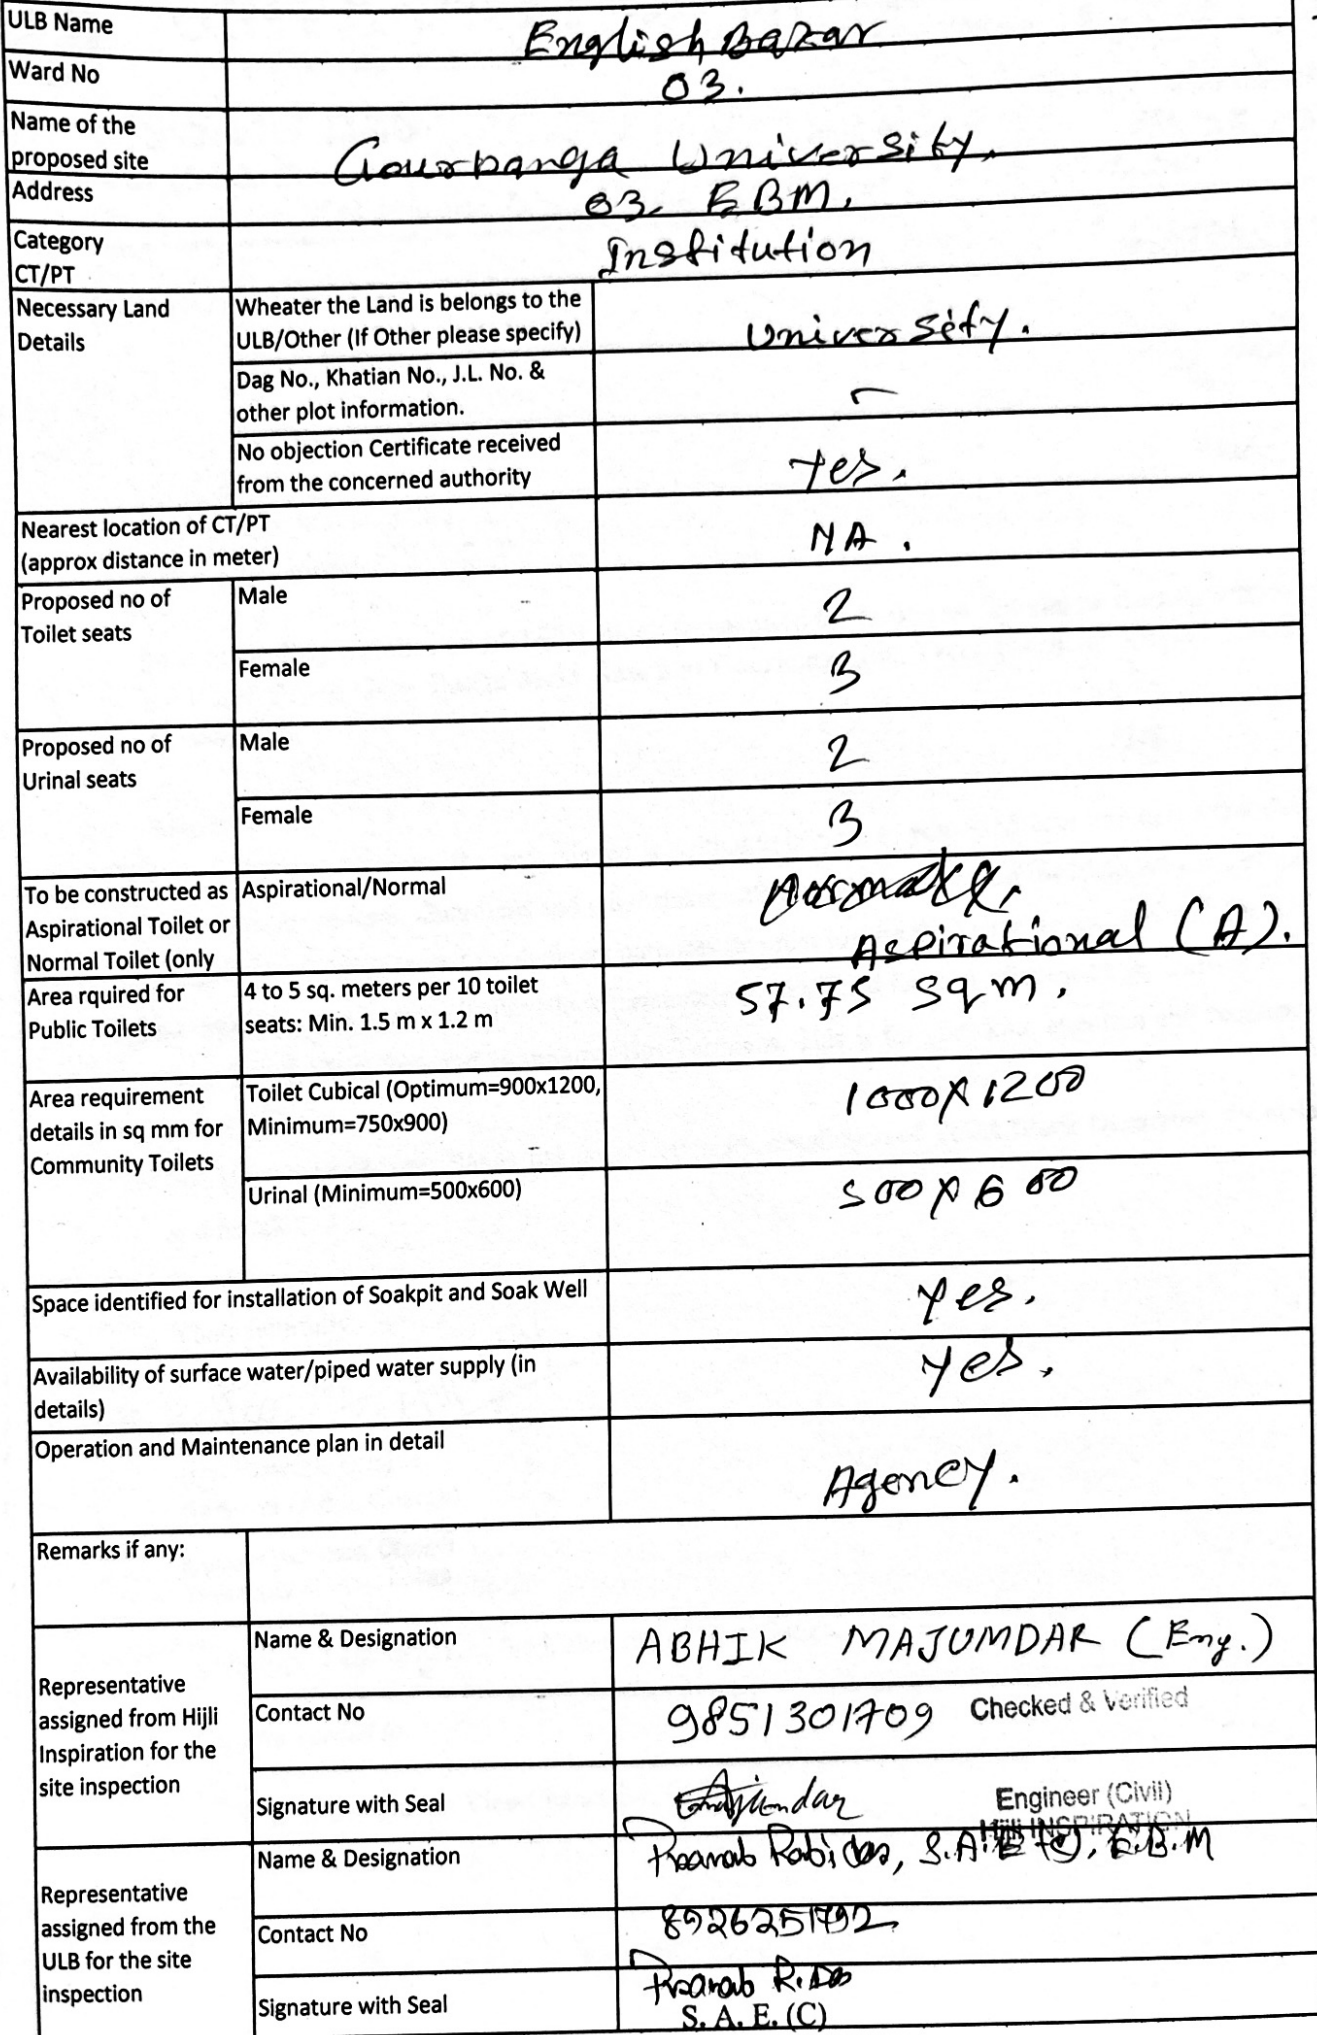 ULB Name
English Bazar
Ward No
03.
Name of the
proposed site
Gourbanga University.
Address
03, EBM.
Category
CT/PT
Institution
Necessary Land
Details
Wheater the Land is belongs to the
ULB/Other (If Other please specify)
University.
Dag No., Khatian No., J.L. No. &
other plot information.
No objection Certificate received
from the concerned authority
Yes.
Nearest location of CT/PT
(approx distance in meter)
NA.
Proposed no of
Toilet seats
Male
2
Female
3
Proposed no of
Urinal seats
Male
2
Female
3
To be constructed as
Aspirational Toilet or
Normal Toilet (only
Aspirational/Normal
Aspirational (A).
Area rquired for
Public Toilets
4 to 5 sq. meters per 10 toilet
seats: Min. 1.5 m x 1.2 m
57.75 sqm.
Area requirement
details in sq mm for
Community Toilets
Toilet Cubical (Optimum=900x1200,
Minimum=750x900)
1000X1200
Urinal (Minimum=500x600)
500X600
Space identified for installation of Soakpit and Soak Well
Yes.
Availability of surface water/piped water supply (in
details)
Yes.
Operation and Maintenance plan in detail
Agency.
Remarks if any:
Representative
assigned from Hijli
Inspiration for the
site inspection
Name & Designation
ABHIK MAJUMDAR (Eng.)
Contact No
9851301709
Checked & Verified
Signature with Seal
Engineer (Civil)
Hijli INSPIRATION
Representative
assigned from the
ULB for the site
inspection
Name & Designation
Pranab Rabidas, S.A.E (C), E.B.M
Contact No
8926251792
Signature with Seal
Pranab R. Das
S. A. E. (C)